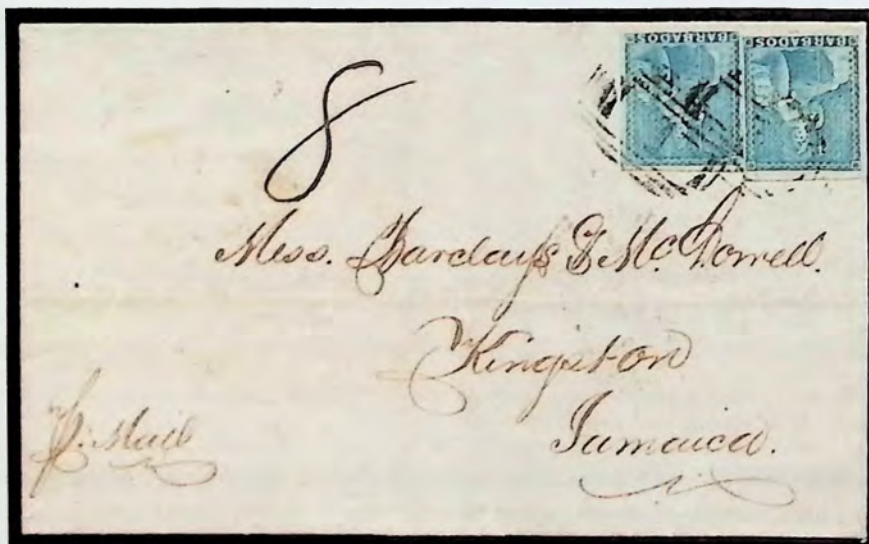 BARBADOS BARBADOS
8
Mess. Barclays & McDowell.
Kingston
Jamaica.
p. Mail